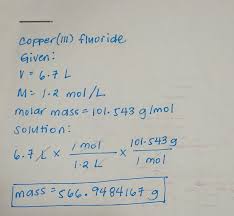 copper(III) fluoride
Given:
V = 6.7 L
M = 1.2 mol/L
molar mass = 101.543 g/mol
solution:
6.7 L × 1 mol / 1.2 L × 101.543 g / 1 mol
mass = 566.9484167 g